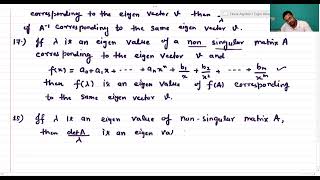 corresponding to the eigen vector v then
of A⁻¹ corresponding to the same eigen vector v. λ
17:) If λ is an eigen value of a non singular matrix A
corresponding to the eigen vector v and
f(x) = a₀ + a₁x + ----- + aₙxⁿ + b₁/x + b₂/x² + --- + bₘ/xᵐ ✓
then f(λ) is an eigen value of f(A) corresponding
to the same eigen vector v.
18:) If λ is an eigen value of non-singular matrix A,
then detA/λ is an eigen val